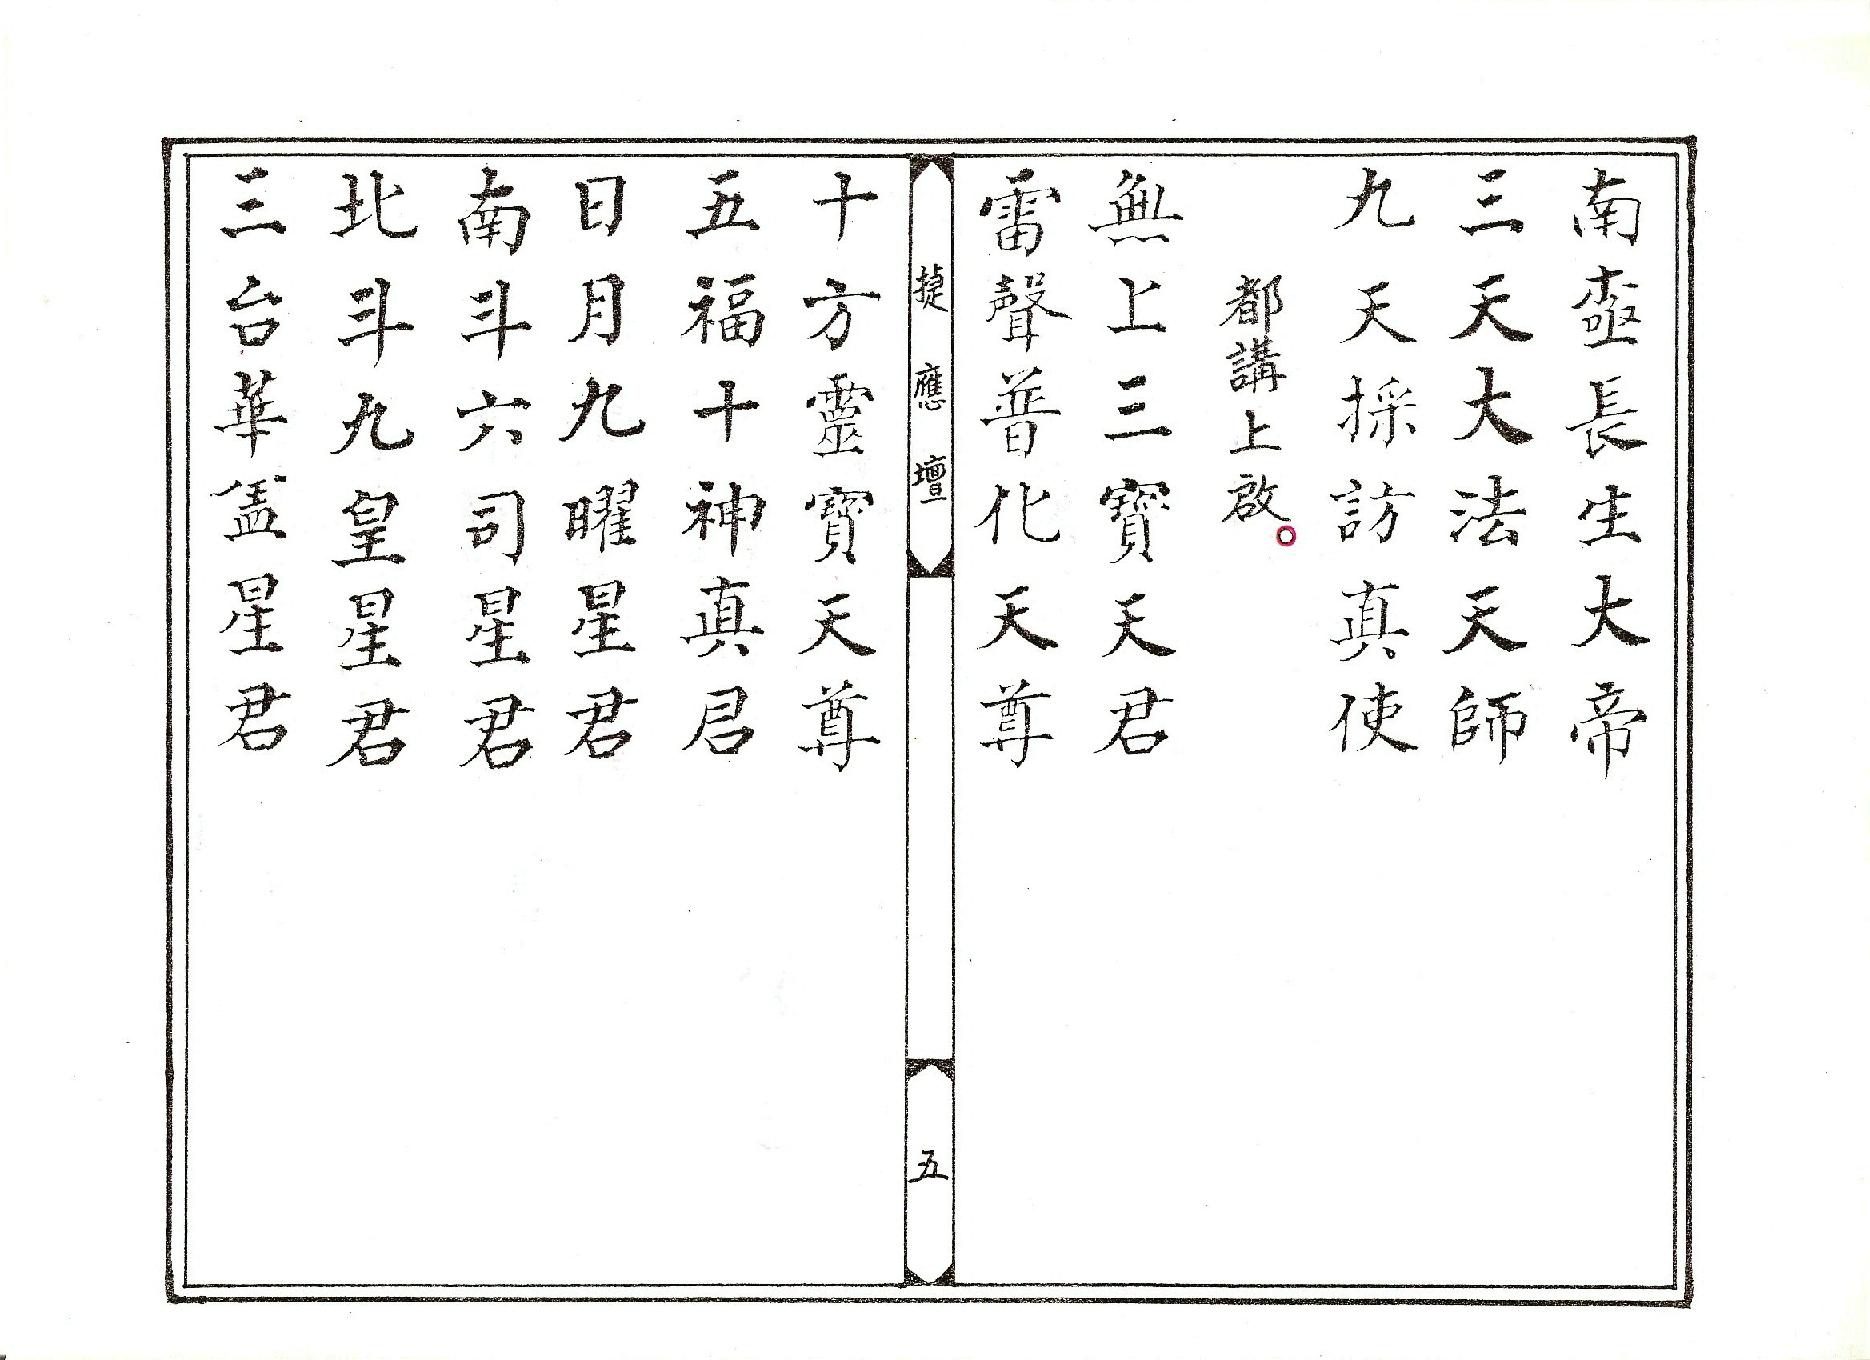 南極長生大帝
三天大法天師
九天採訪真使
都講上啟。
無上三寶天君
雷聲普化天尊
捷應壇
五
十方靈寶天尊
五福十神真君
日月九曜星君
南斗六司星君
北斗九皇星君
三台華盖星君